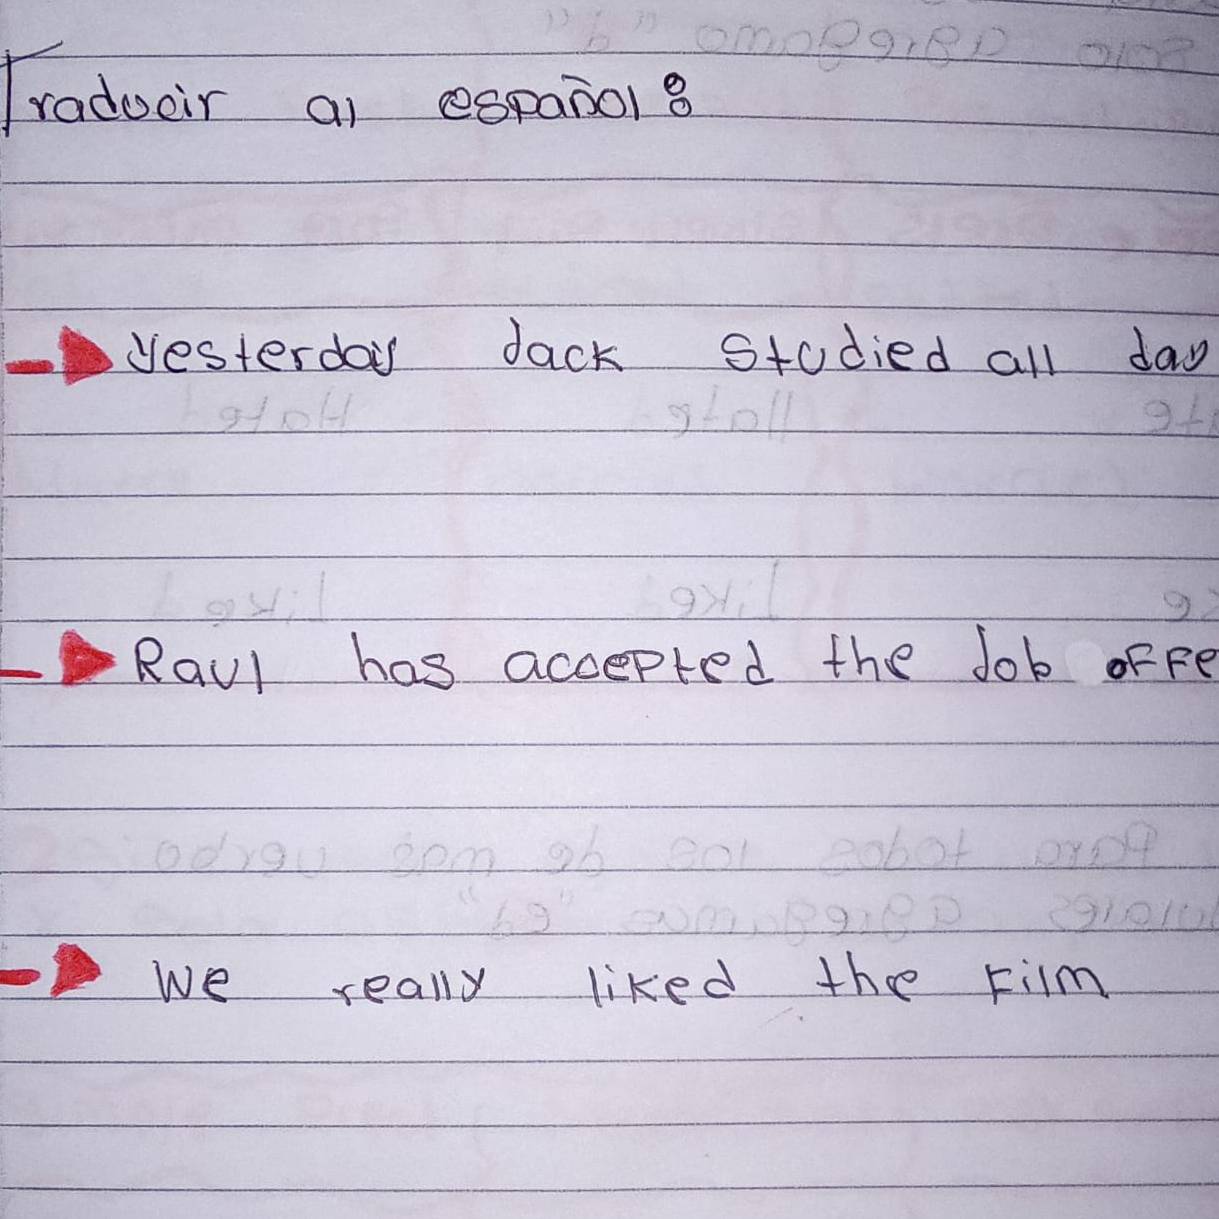 Traducir al español:
Yesterday Jack studied all day
Raul has accepted the Job offe
We really liked the Film